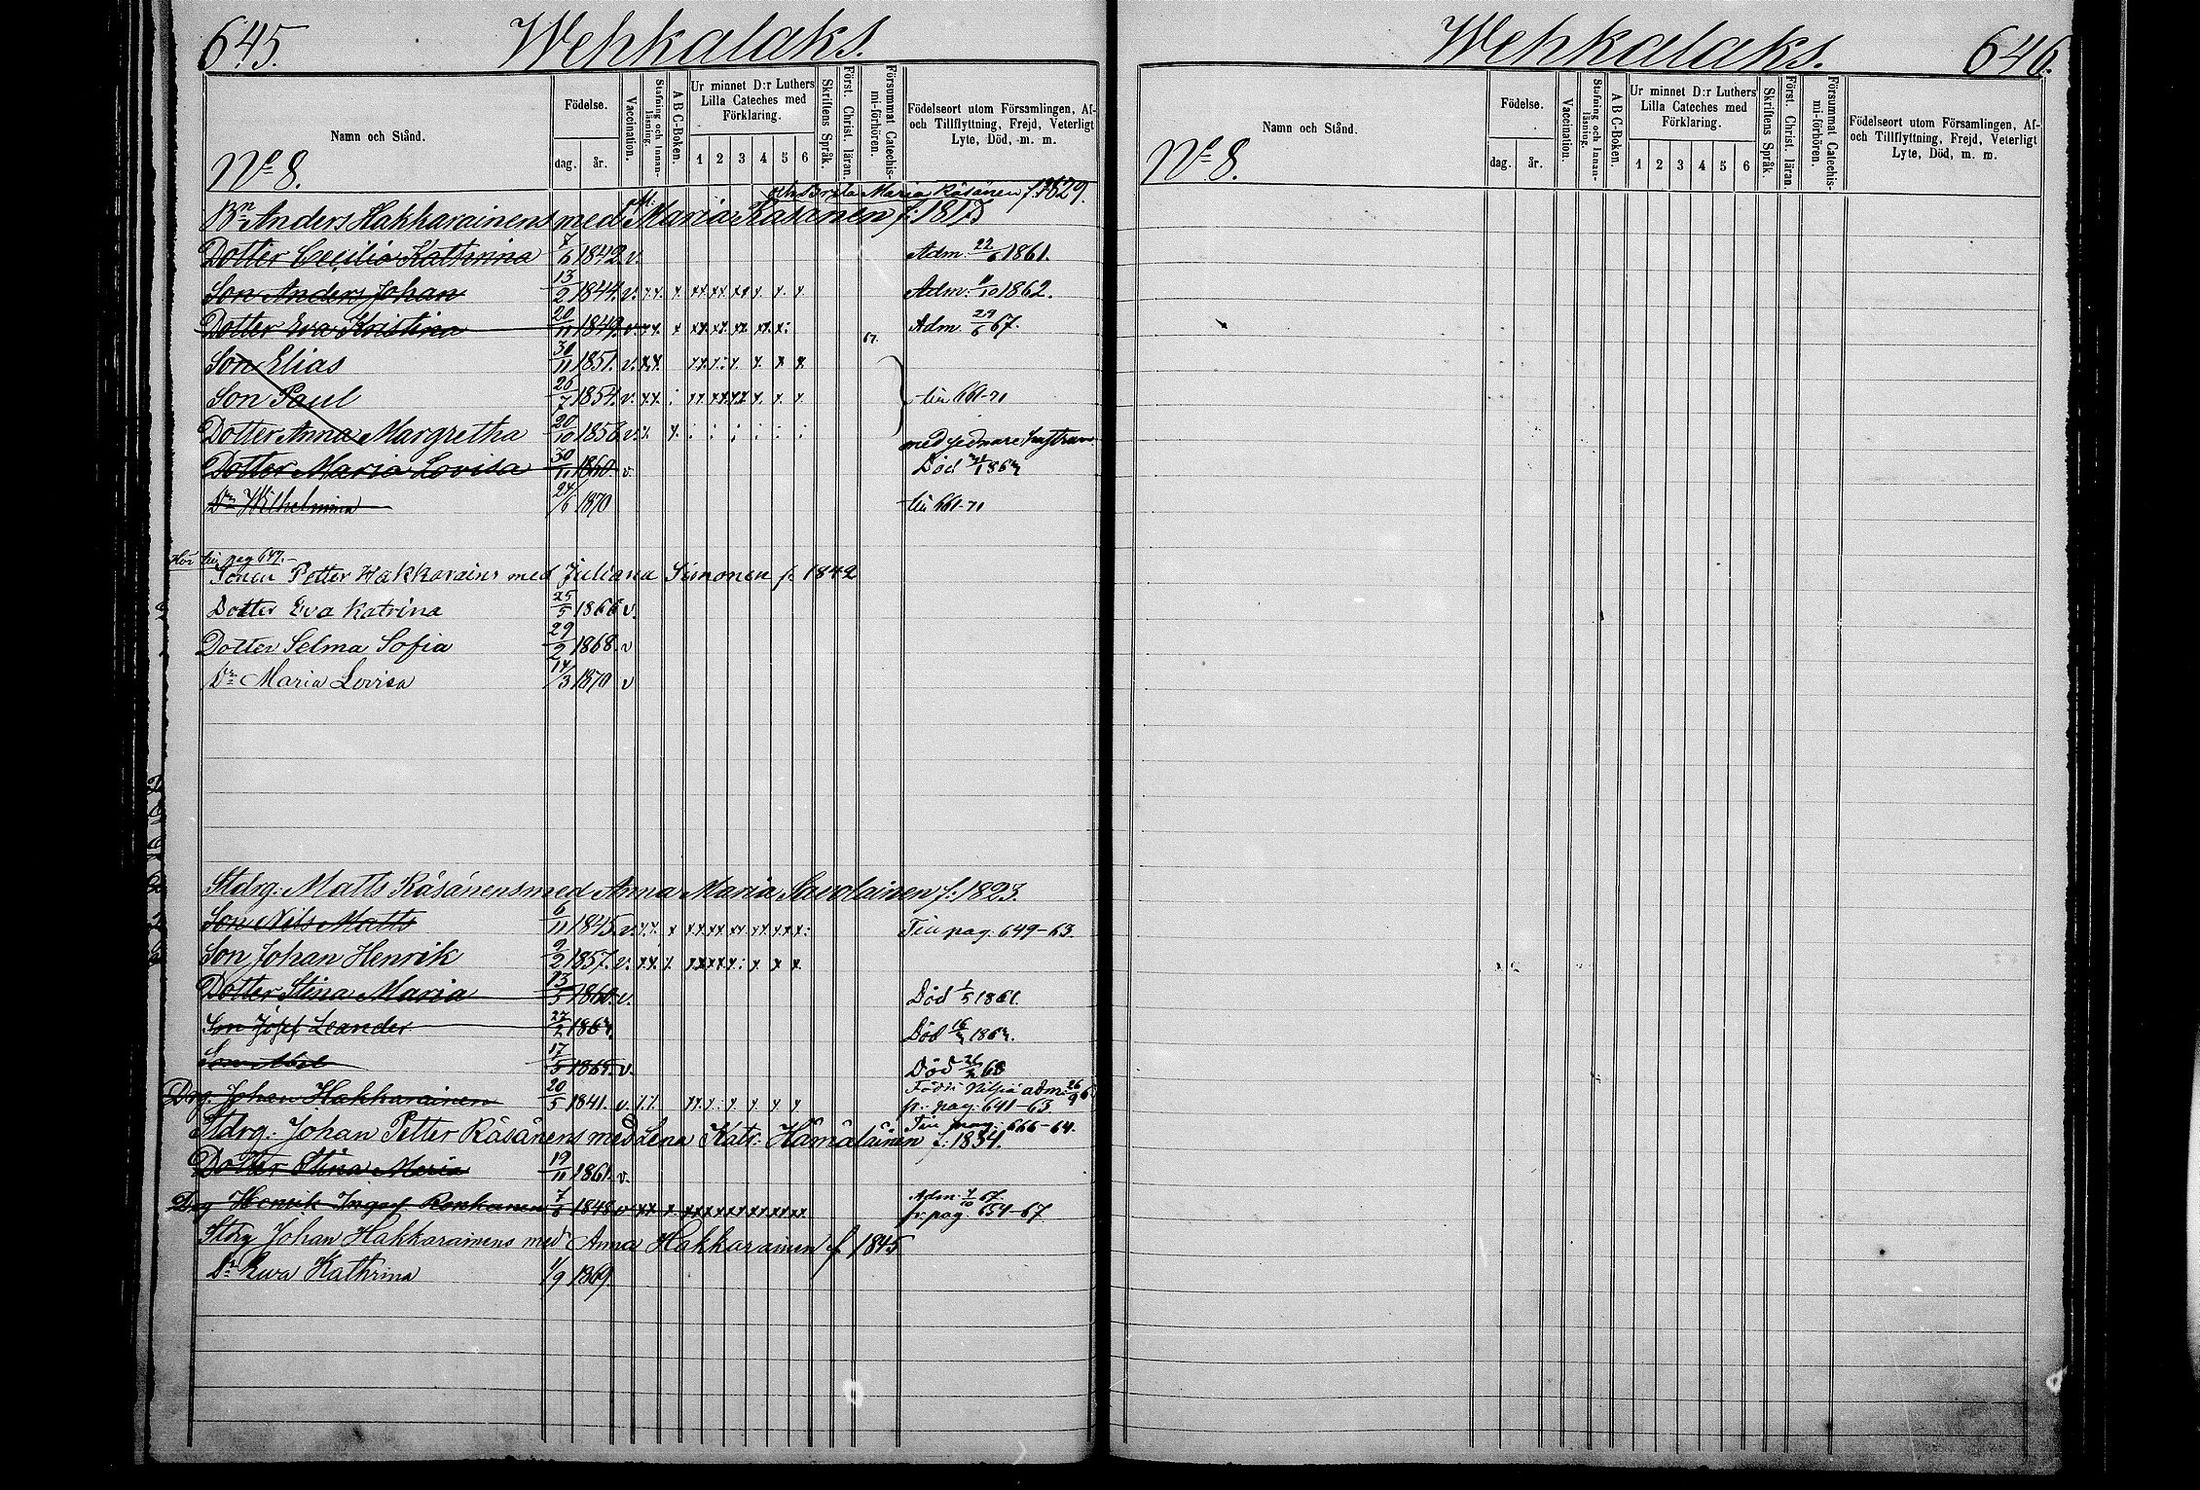 645. Wehkalaks.
Namn och Stånd.
Födelse.
dag. år.
Vaccination.
Stafning och Innanläsning.
A B C-Boken.
Ur minnet D:r Luthers Lilla Cateches med Förklaring.
1 2 3 4 5 6
Skriftens Språk.
Först. Christ. läran.
Försummat Catechismi-förhören.
Födelseort utom Församlingen, Af- och Tillflyttning, Frejd, Veterligt Lyte, Död, m. m.
No 8.
Maria Räsänen f. 1829.
Bn Anders Hakkarainens med Maria Räsänen f: 181
Dotter Cecilia Kathrina 7/6 1842. v. Adm. 22/6 1861.
Son Anders Johan 13/2 1844. v. x x. x xx xx xx x. x x Adm: 11/10 1862.
Dotter Eva Kristina 20/11 1849. v. x x. x xx. xx. xx. xx. x: Adm. 29/6 67.
67.
Son Elias 30/11 1851. v. x x.
Son Paul 26/7 1854. v. x x. : xx. xx. xx x. x. x. 661-71
Dotter Anna Margretha 20/10 1858. v. x. x. : : : : : :
med
Dotter Maria Lovisa 30/11 1860 v. Död
Dr Wilhelmina 24/6 1870 661-71
pag 647.
Sonen Petter Hakkarains med Juliana Simonen f. 1842
Dotter Eva Katrina 25/5 1866 v.
Dotter Selma Sofia 29/2 1868. v
Dr Maria Lovisa 14/3 1870 v
Stdrg: Matts Räsänens med Anna Maria Savolainen f: 1823.
Son Nils Matts 6/11 1845. v. x x. x xx xx xx xx xx x: Till pag: 649-63.
Son Johan Henrik 9/2 1857. v. x x. x.
Dotter Stina Maria 13/5 1860. v. Död 1/5 1861.
Son Josef Leander 22/2 Död
Son Abel 17/5 1865. v. Död 68
Drg. Johan Hakkarainen 20/5 1841. v. x x. xx. x: x x x x
Född i Nilsiä adm: 26/9
fr. pag: 641-63.
Till pag: 666-64.
Stdrg: Johan Petter Räsänens med Lena Katr: Hämäläinen f: 1834.
Dotter Stina Maria 19/11 1861. v.
Adm. 7/10 67.
Drg Henrik Ronkanen 7/6 1848 v x x. x. xx xx xx xx xx xx fr. pag. 654-67
Stdrg Johan Hakkarainens med Anna Hakkarainen f 1845
Dr Eva Kathrina 1/9 1869.
Wehkalaks. 646.
Namn och Stånd.
Födelse.
dag. år.
Vaccination.
Stafning och Innanläsning.
A B C-Boken.
Ur minnet D:r Luthers Lilla Cateches med Förklaring.
1 2 3 4 5 6
Skriftens Språk.
Först. Christ. läran.
Försummat Catechismi-förhören.
Födelseort utom Församlingen, Af- och Tillflyttning, Frejd, Veterligt Lyte, Död, m. m.
No 8.